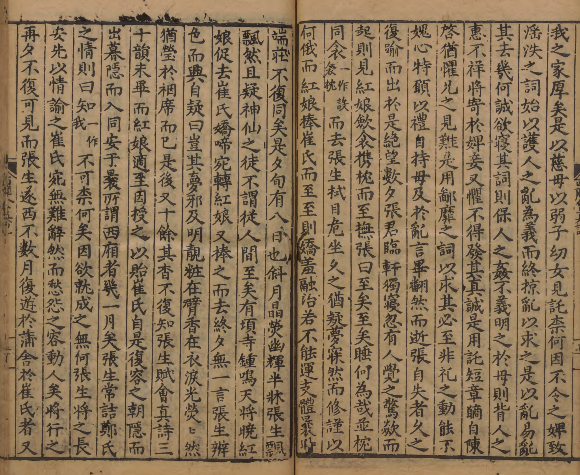 我之家厚矣是以慈母以弱子幼女見託柰何因不令之婢致
淫泆之詞始以護人之亂為義而終掠亂以求之是以亂易亂
其去幾何誠欲寢其詞則保人之姦不義明之於母則背人之
惠不祥將寄於婢妾又懼不得發其真誠是用託短章願自陳
啓猶懼兄之見難是用鄙靡之詞以求其必至非礼之動能不
媿心特願以禮自持毋及於亂言畢翻然而逝張自失者久之
復踰而出於是絕望數夕張君臨軒獨寢忽有人覺之驚欻而
起則見紅娘歛衾携枕而至撫張曰至矣至矣睡何為哉並枕
同衾作設衾枕而去張生拭目危坐久之猶疑夢寐然而修謹以
何俄而紅娘捧崔氏而至至則嬌羞融冶若不能運支體曩時
端莊不復同矣是夕旬有八日也斜月晶熒幽輝半牀張生飄
飄然且疑神仙之徒不謂徒人間至矣有頃寺鍾鳴天將曉紅
娘促去崔氏嬌啼宛轉紅娘又捧之而去終夕無一言張生辨
色而興自疑曰豈其夢邪及明覩粧在臂香在衣淚光熒〻然
猶瑩於裀席而已是後又十餘其杳不復知張生賦會真詩三
十韻未畢而紅娘適至因授之以貽崔氏自是復容之朝隱而
出暮隱而入同安于曩所謂西廂者幾一月矣張生常詰鄭氏
之情則曰知一作我不可柰何矣因欲就成之無何張生將之長
安先以情諭之崔氏宛無難辭然而愁怨之容動人矣將行之
再夕不復可見而張生遂西不數月復遊於蒲舍於崔氏者又